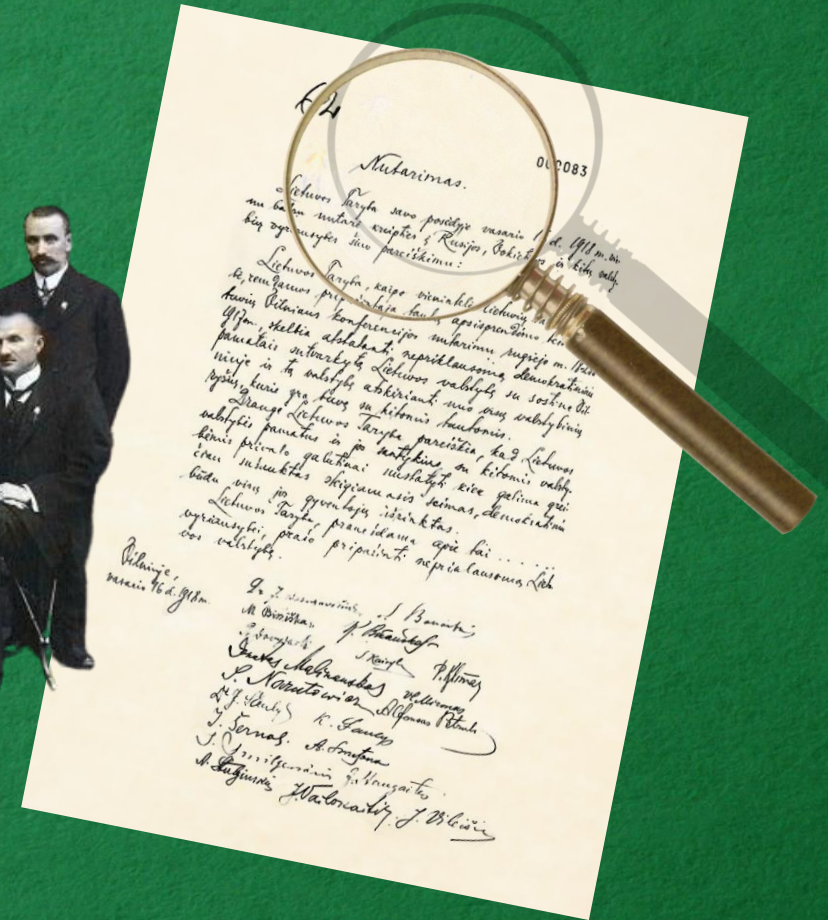 Nutarimas.
Lietuvos Taryba savo posėdyje vasario d. 1918 m. vie-
nu balsu nutarė kreipties į Rusijos, Vokietijos ir kitų valsty-
bių vyriausybes šiuo pareiškimu:
Lietuvos Taryba, kaipo vienintelė lietuvių
bė, remdamos pripažintąja tautų apsisprendimo
tuvių Vilniaus konferencijos nutarimu rugsėjo m.
1917 m., skelbia atstatanti nepriklausomą demokratiniais
pamatais sutvarkytą Lietuvos valstybę su sostine Vil-
niuje ir tą valstybę atskirianti nuo visų valstybinių
ryšių, kurie yra buvę su kitomis tautomis.
Drauge Lietuvos Taryba pareiškia, kad Lietuvos
valstybės pamatus ir jos santykius su kitomis valsty-
bėmis privalo galutinai nustatyti kiek galima grei-
čiau sušauktas steigiamasis seimas, demokratiniu
būdu visų jos gyventojų išrinktas.
Lietuvos Taryba, pranešdama apie tai . . . . . .
vyriausybei, prašo pripažinti nepriklausomą Lietu-
vos valstybę.
Vilniuje,
vasario 16 d. 1918 m.
Dr. J. Basanavičius S. Banaitis
M. Biržiška
S. Kairys P. Klimas
Donatas Malinauskas Vl. Mironas
S. Narutowicz Alfonsas Petrulis
Dr J. Šaulys K. Šaulys
J. Šernas A. Smetona
J. Smilgevičius J. Staugaitis
A. Stulginskis J. Vailokaitis J. Vileišis